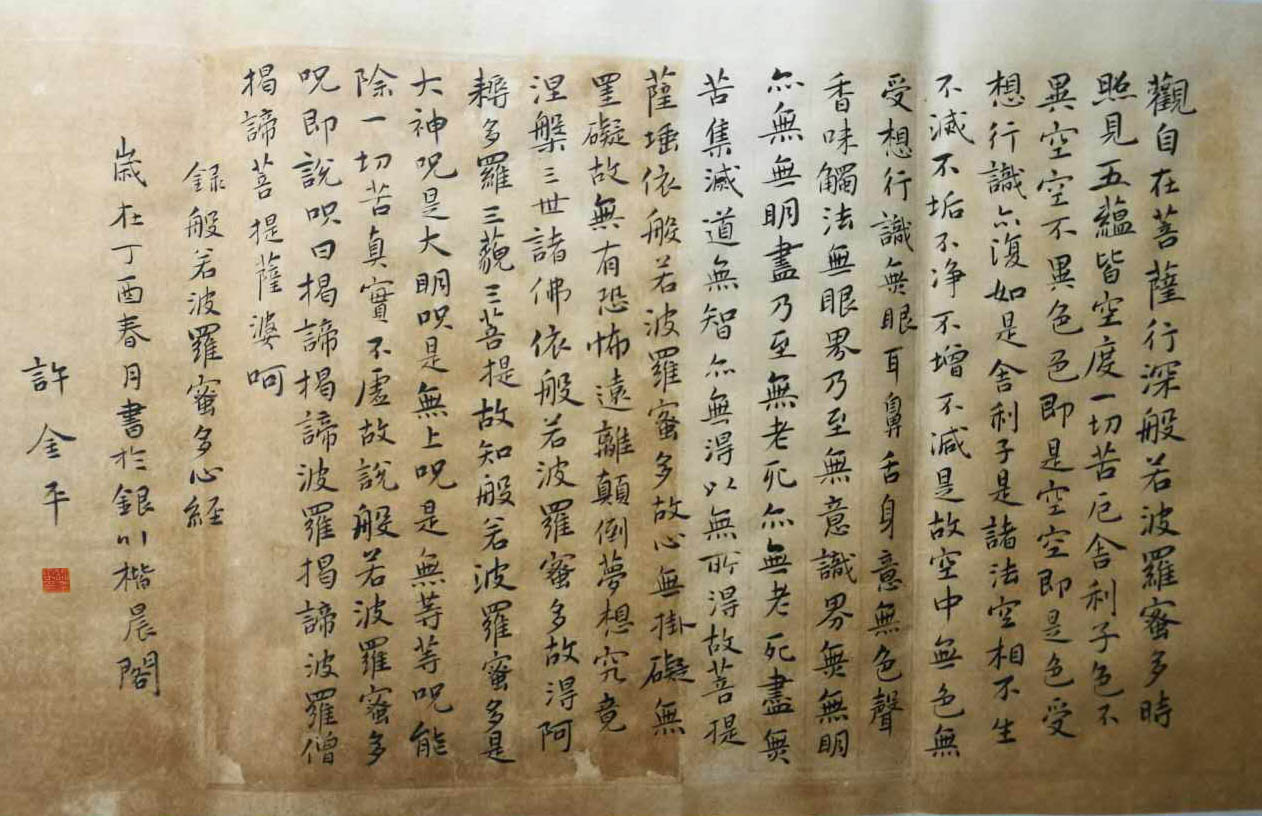 觀自在菩薩行深般若波羅蜜多時
照見五蘊皆空度一切苦厄舍利子色不
異空空不異色色即是空空即是色受
想行識亦復如是舍利子是諸法空相不生
不滅不垢不净不增不減是故空中無色無
受想行識無眼耳鼻舌身意無色聲
香味觸法無眼界乃至無意識界無無明
亦無無明盡乃至無老死亦無老死盡無
苦集滅道無智亦無得以無所得故菩提
薩埵依般若波羅蜜多故心無掛礙無
罣礙故無有恐怖遠離顛倒夢想究竟
涅槃三世諸佛依般若波羅蜜多故得阿
耨多羅三藐三菩提故知般若波羅蜜多是
大神呪是大明呪是無上呪是無等等呪能
除一切苦真實不虛故說般若波羅蜜多
呪即說呪曰揭諦揭諦波羅揭諦波羅僧
揭諦菩提薩婆呵
録般若波羅蜜多心経
歲在丁酉春月書於銀川楷晨閣
許金平